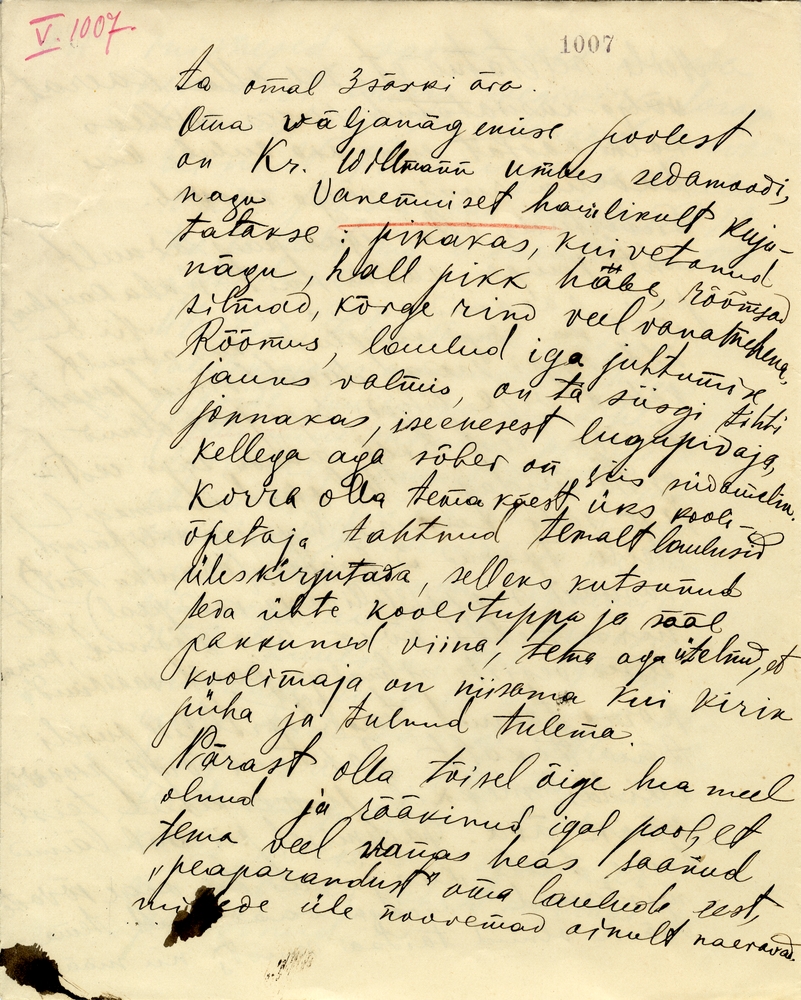 V. 1007.
1007
ta omal 3 särki ära.
Oma väljanägemise poolest
on Kr. Willmann umbes sedamoodi,
nagu Vanemuiset harilikult kuju-
tatakse: pikakas, kuivetanud
nägu, hall pikk häbe, rõõmsad
silmad, kõrge rind veel vanatmehena,
Rõõmus, laulud iga juhtumise
jauks valmis, on ta siisgi tihti
jonnakas, iseenesest lugupidaja,
kellega aga sõber on, siis südamelik.
Korra olla tema käest üks kooli-
õpetaja tahtnud temalt laulusid
üleskirjutada, selleks kutsunud
teda ühte koolituppa ja sääl
pakkunud viina, tema aga ütelnud, et
koolimaja on niisama kui kirik
püha ja tulnud tulema.
Pärast olla tõisel õige hea meel
olnud ja rääkinud igal pool, et
tema veel vanas heas saanud
„peaparandust" oma laulude eest,
mille üle nooremad ainult naeravad.